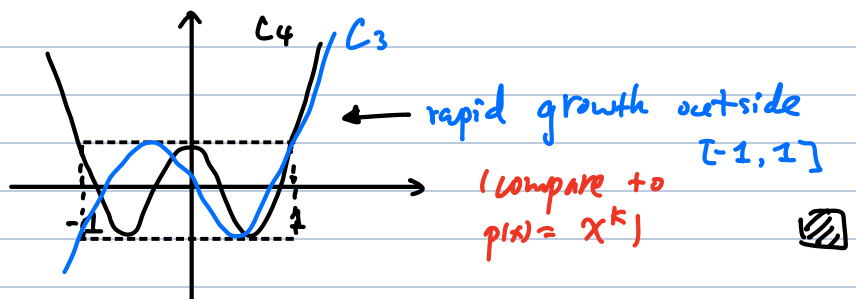 C4 C3
rapid growth outside
[-1, 1]
(compare to
p(x) = x^k)
-1 1